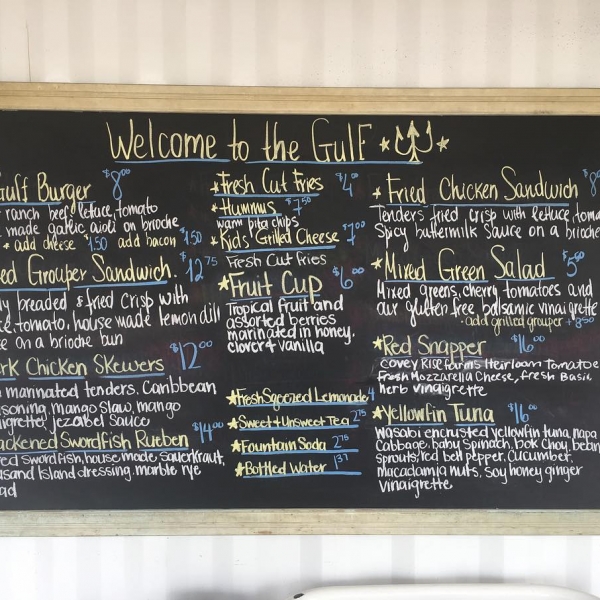 Welcome to the Gulf
Gulf Burger $8.00
ranch beef, lettuce, tomato
made garlic aioli on brioche
* add cheese $1.50 add bacon $1.50
Grouper Sandwich. $12.75
breaded & fried crisp with
tomato, house made lemon dill
on a brioche bun
Chicken Skewers $12.00
marinated tenders. Caribbean
mango slaw, mango
jezabel sauce
Swordfish Rueben $14.00
swordfish, house made sauerkraut,
Island dressing, marble rye
Fresh Cut Fries $4.00
Hummus $7.50
warm pita chips
Kids' Grilled Cheese $7.00
Fresh Cut Fries
Fruit Cup $6.00
Tropical fruit and
assorted berries
marinated in honey,
clover & vanilla
Fresh Sqeezed Lemonade 4
Sweet & Unsweet Tea 2.75
Fountain Soda 2.75
Bottled Water
Fried Chicken Sandwich
Tenders fried crisp with lettuce,
Spicy buttermilk Sauce on a brioche
Mixed Green Salad
Mixed greens, cherry tomatoes and
our gluten free balsamic vinaigrette
- add grilled grouper + 8.50
Red Snapper $16.00
Covey Rise Farms Heirloom Tomatoe
Fresh Mozzarella Cheese, fresh Basil
herb vinaigrette
Yellowfin Tuna $16.00
Wasabi encrusted yellowfin tuna, napa
Cabbage, baby Spinach, Bok Choy, bean
sprouts, red bell pepper, Cucumber,
Macadamia nuts, soy honey ginger
vinaigrette